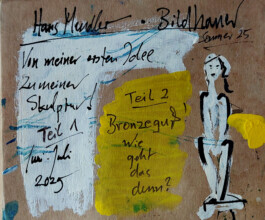 Hans Mendler Bildhauer
Sommer 25
Von meiner ersten Idee
Zu meiner
Skulptur!
Teil 1
Juni - Juli
2025
Teil 2
Bronzeguß!
Wie
geht
das
denn?